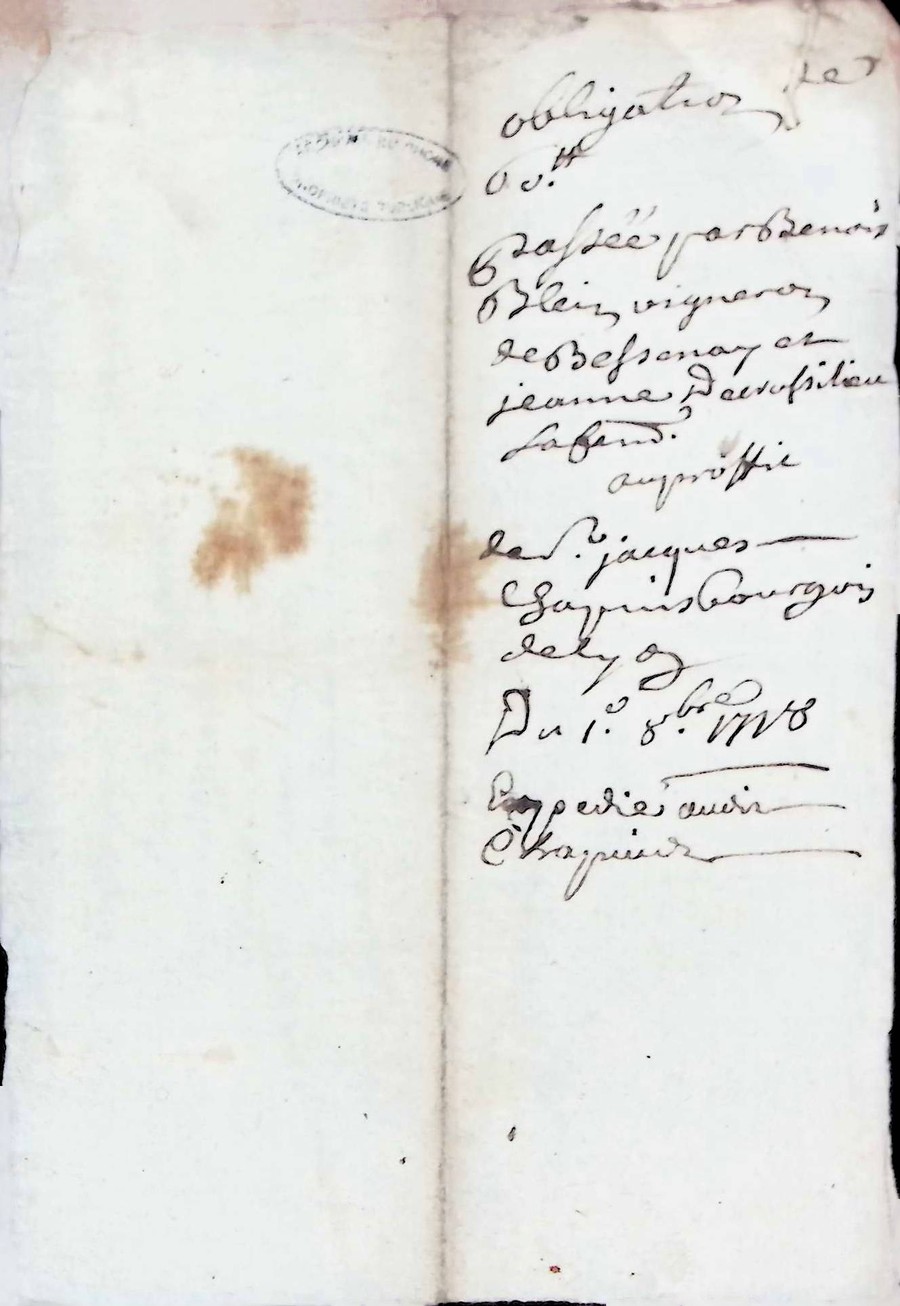 obligation de
60.tt
Passéé par Benois
Blein vigneron
de Bessenay et
jeanne Decrussilieu
sa fem.e
au proffit
de Sr. jacques
Chapuis bourgois
de lyon
Du 1.o 8.bre
Expedié audit
Chapuis